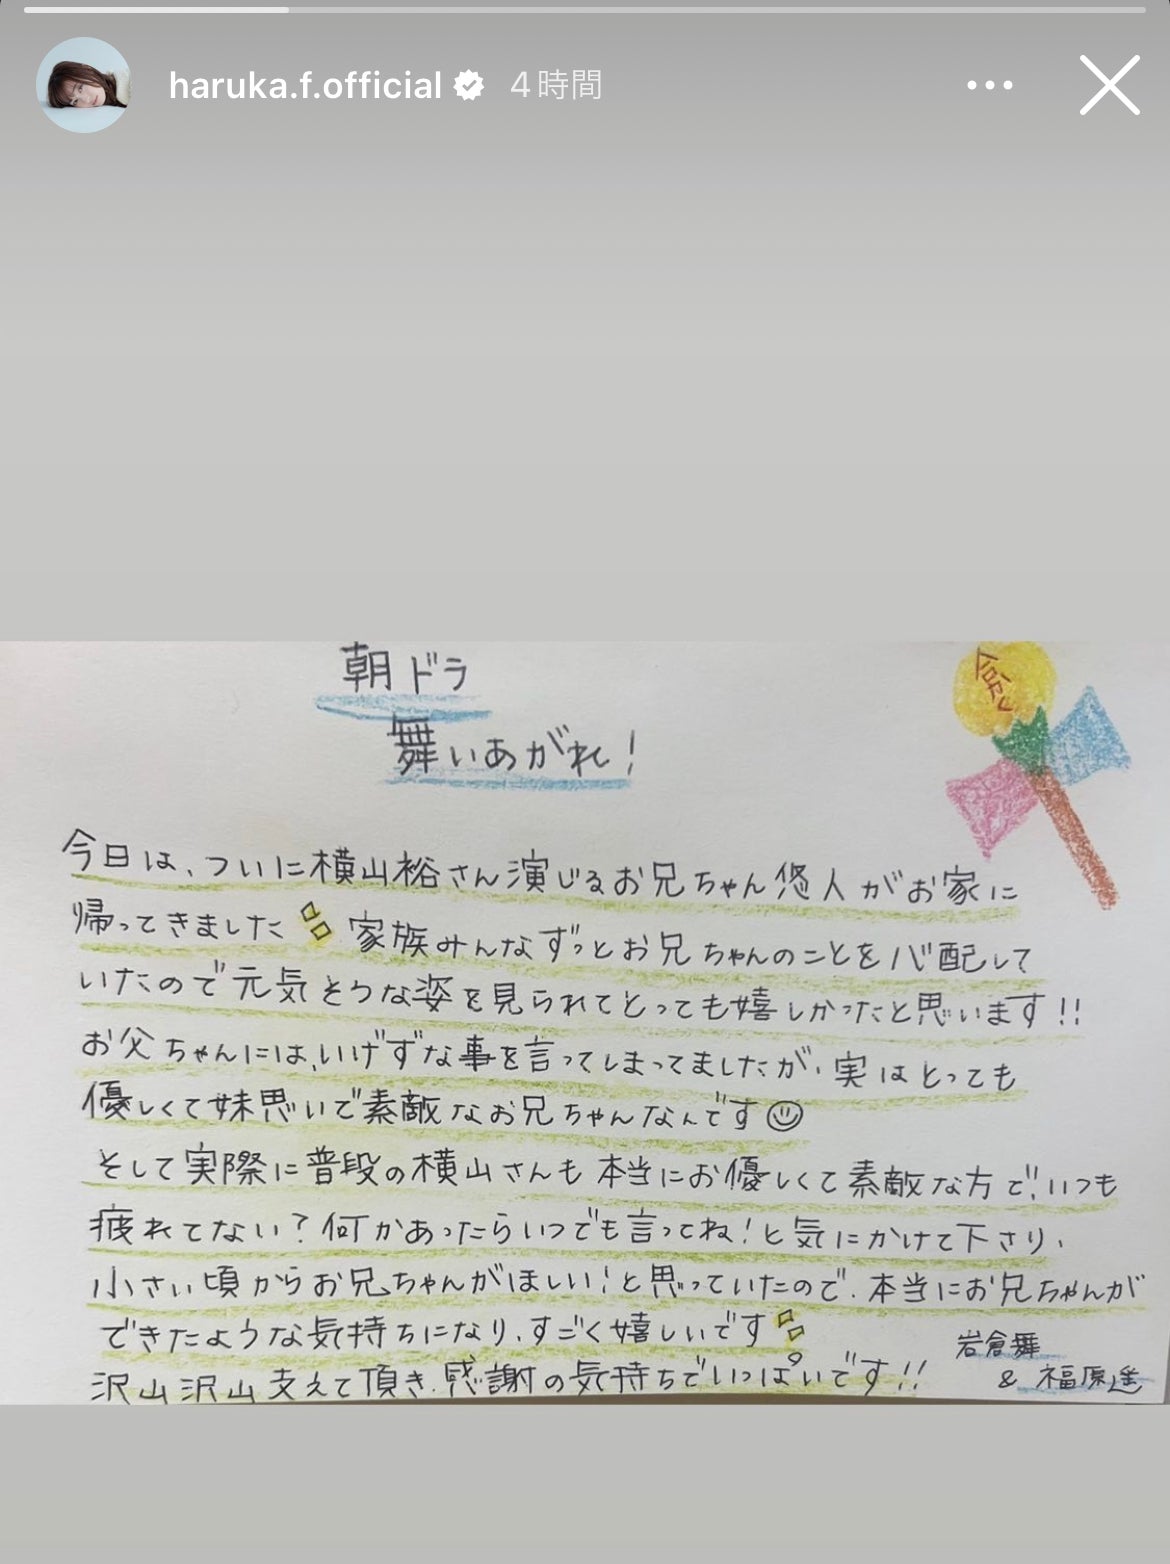 haruka.f.official 4時間
朝ドラ
舞いあがれ!
今日は、ついに横山裕さん演じるお兄ちゃん悠人がお家に
帰ってきました 家族みんなずっとお兄ちゃんのことを心配して
いたので元気そうな姿を見られてとっても嬉しかったと思います!!
お父ちゃんには、いげずな事を言ってしまってましたが、実はとっても
優しくて妹思いで素敵なお兄ちゃんなんです
そして実際に普段の横山さんも本当にお優しくて素敵な方で、いつも
疲れてない?何かあったらいつでも言ってね!と気にかけて下さり、
小さい頃からお兄ちゃんがほしい!と思っていたので、本当にお兄ちゃんが
できたような気持ちになり、すごく嬉しいです
沢山沢山支えて頂き、感謝の気持ちでいっぱいです!!
岩倉舞
& 福原遥